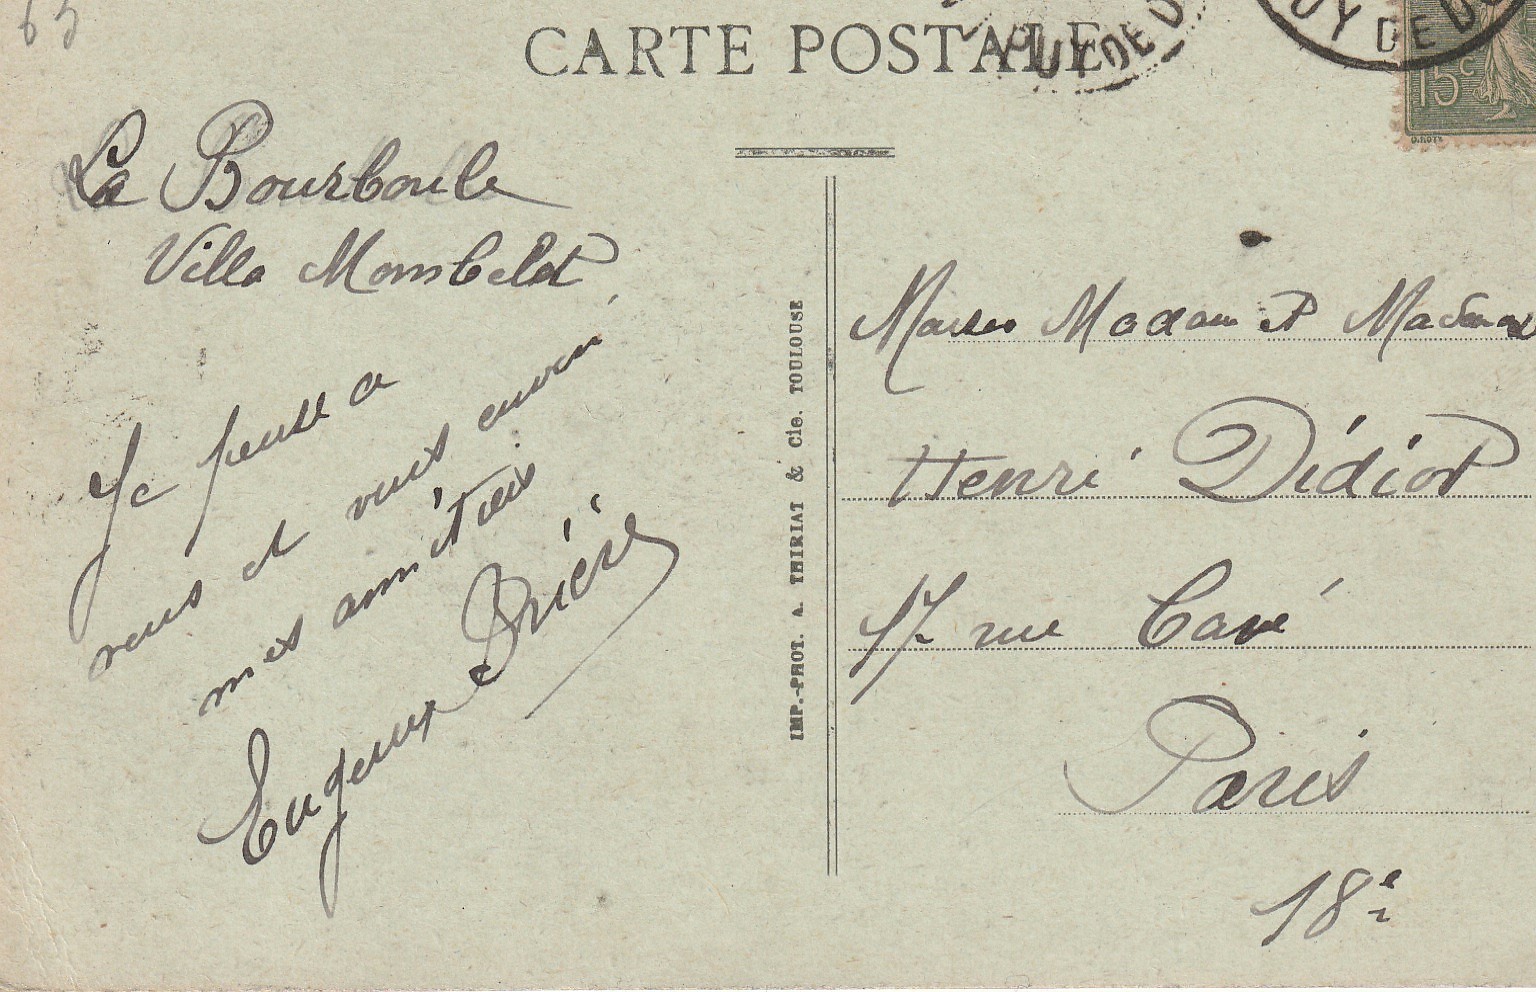 63
CARTE POSTALE
PUY DE D
UY DE DO
15c
La Bourboule
Villa Mombelet
Je pense a
vous et vous envoie
mes amitiés
Eugenie Brière
IMP.-PHOT. A. THIRIAT & Cie. TOULOUSE
Madame et
Henri Didiot
17 rue Cavé
Paris
18e